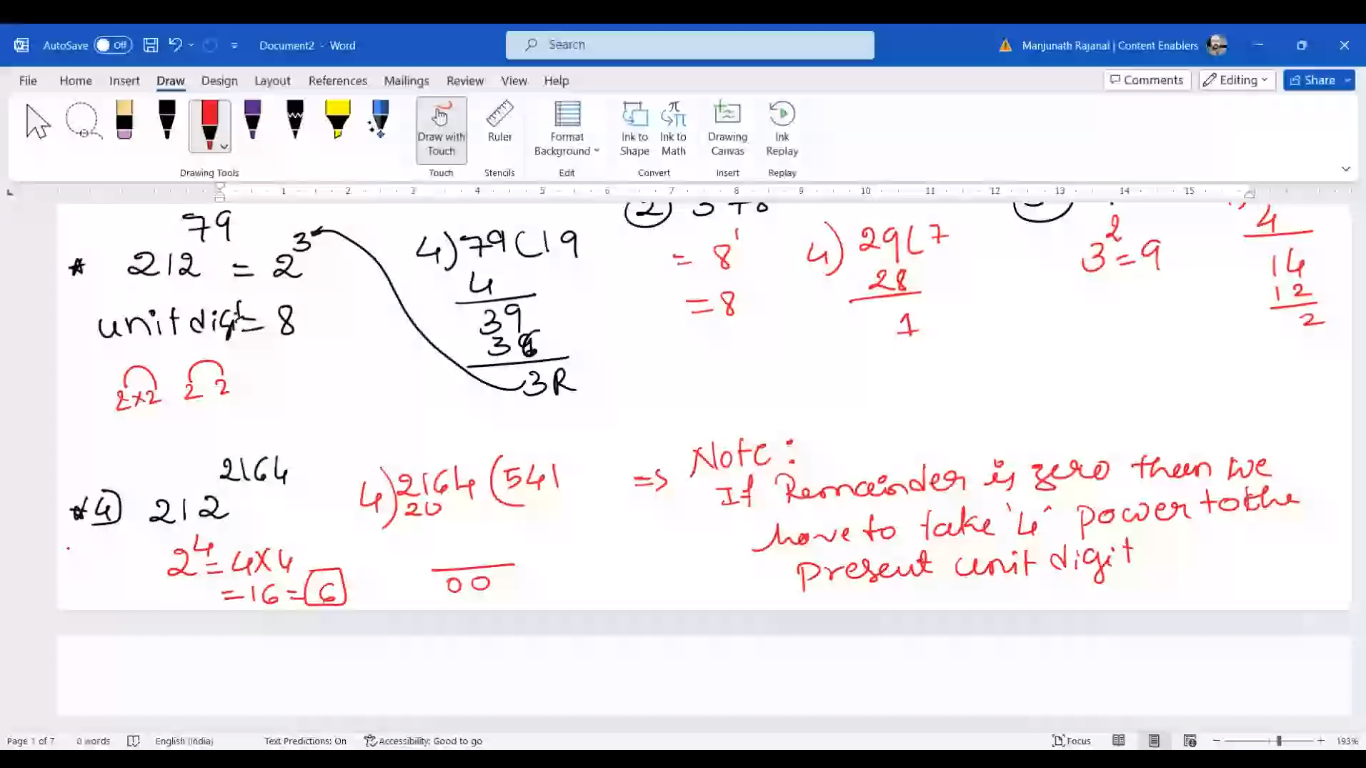 AutoSave Off Document2 - Word Search Manjunath Rajanal | Content Enablers
File Home Insert Draw Design Layout References Mailings Review View Help Comments Editing Share
Draw with Touch Ruler Format Background Ink to Shape Ink to Math Drawing Canvas Ink Replay
Drawing Tools Touch Stencils Edit Convert Insert Replay
1 2 3 4 5 6 7 8 9 10 11 12 13 14 15
* 212^79 = 2^3
unit digit = 8
2×2 2 2
4) 79 ( 19
4
39
36
3R
2
= 8^1
= 8
4) 29 ( 7
28
1
3^2 = 9
4
14
12
2
* 4) 212^2164
2^4 = 4×4
= 16 = 6
4) 2164 ( 541
20
00
=> Note :
If Remainder is zero then we
have to take '4' power to the
present unit digit
Page 1 of 7 0 words English (India) Text Predictions: On Accessibility: Good to go Focus 193%